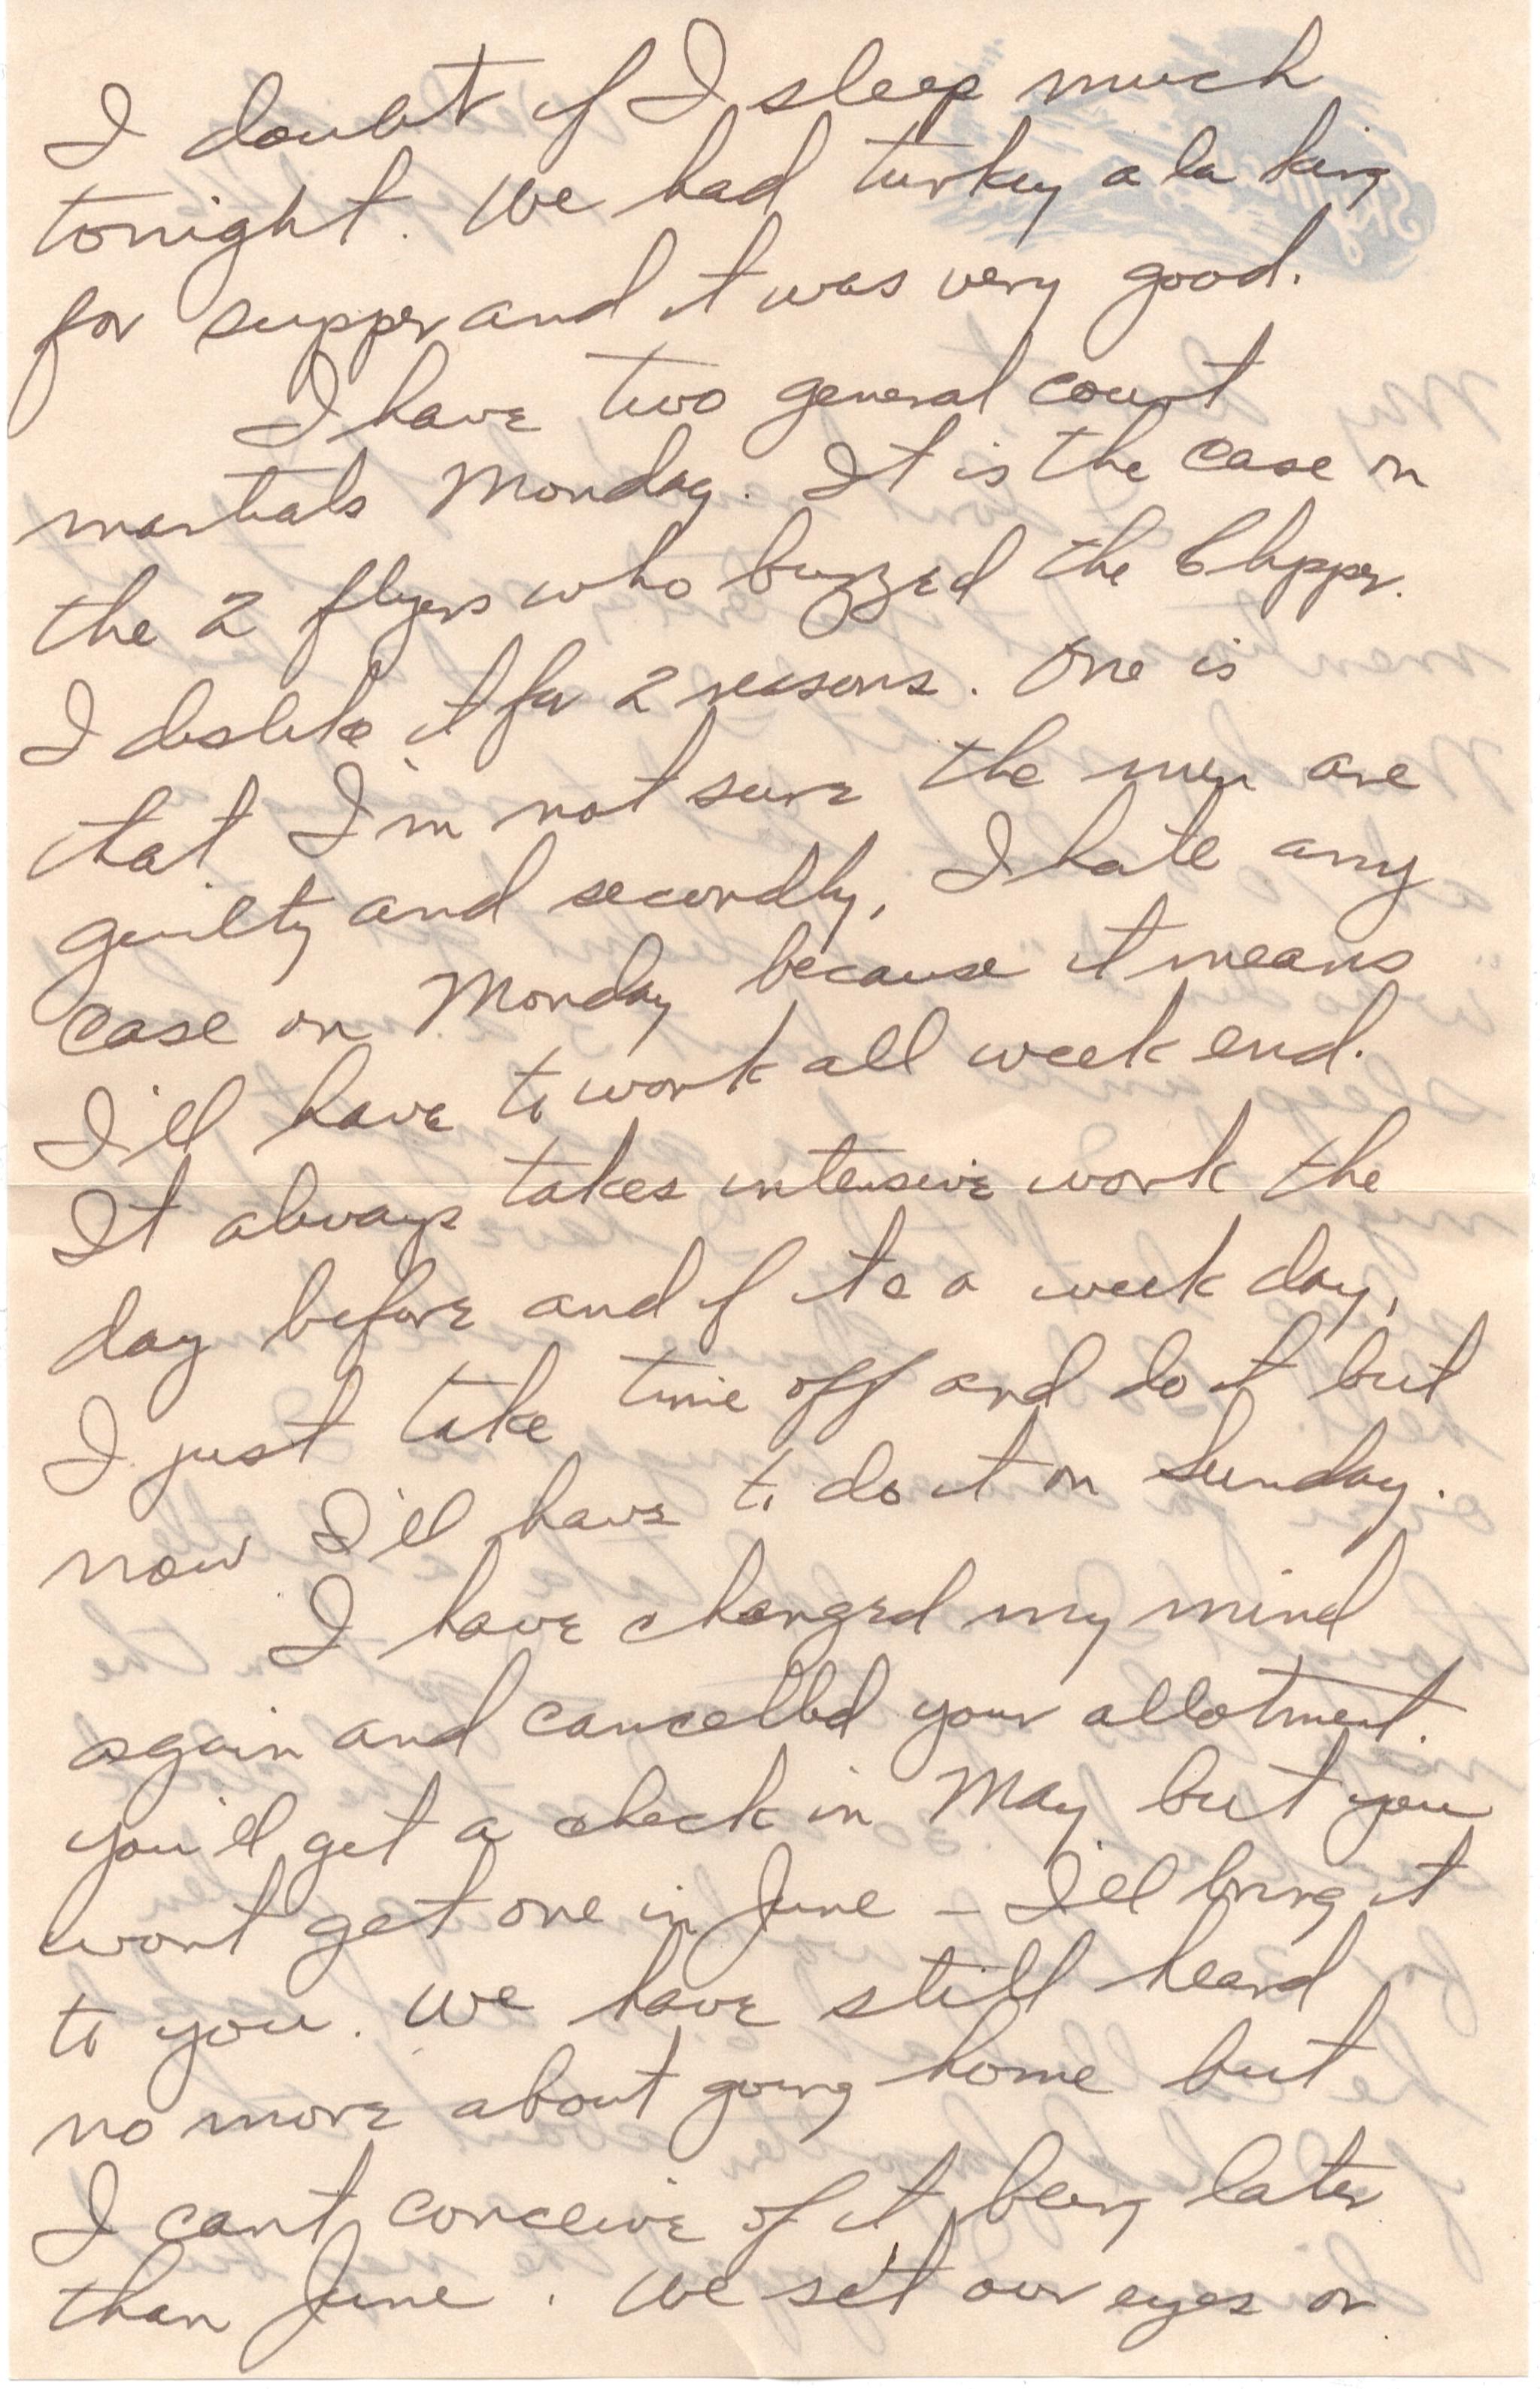 I doubt if I sleep much
tonight. We had turkey a la king
for supper and it was very good.
I have two general court
martials Monday. It is the case on
the 2 flyers who buzzed the Clipper.
I dislike it for 2 reasons. One is
that I'm not sure the men are
guilty and secondly, I hate any
case on Monday because it means
I'll have to work all week end.
It always takes intensive work the
day before and if its a week day,
I just take time off and do it but
now I'll have to do it on Sunday.
I have changed my mind
again and cancelled your allotment.
You'll get a check in May but you
wont get one in June – I'll bring it
to you. We have still heard
no more about going home but
I cant conceive of it being later
than June. We set our eyes on